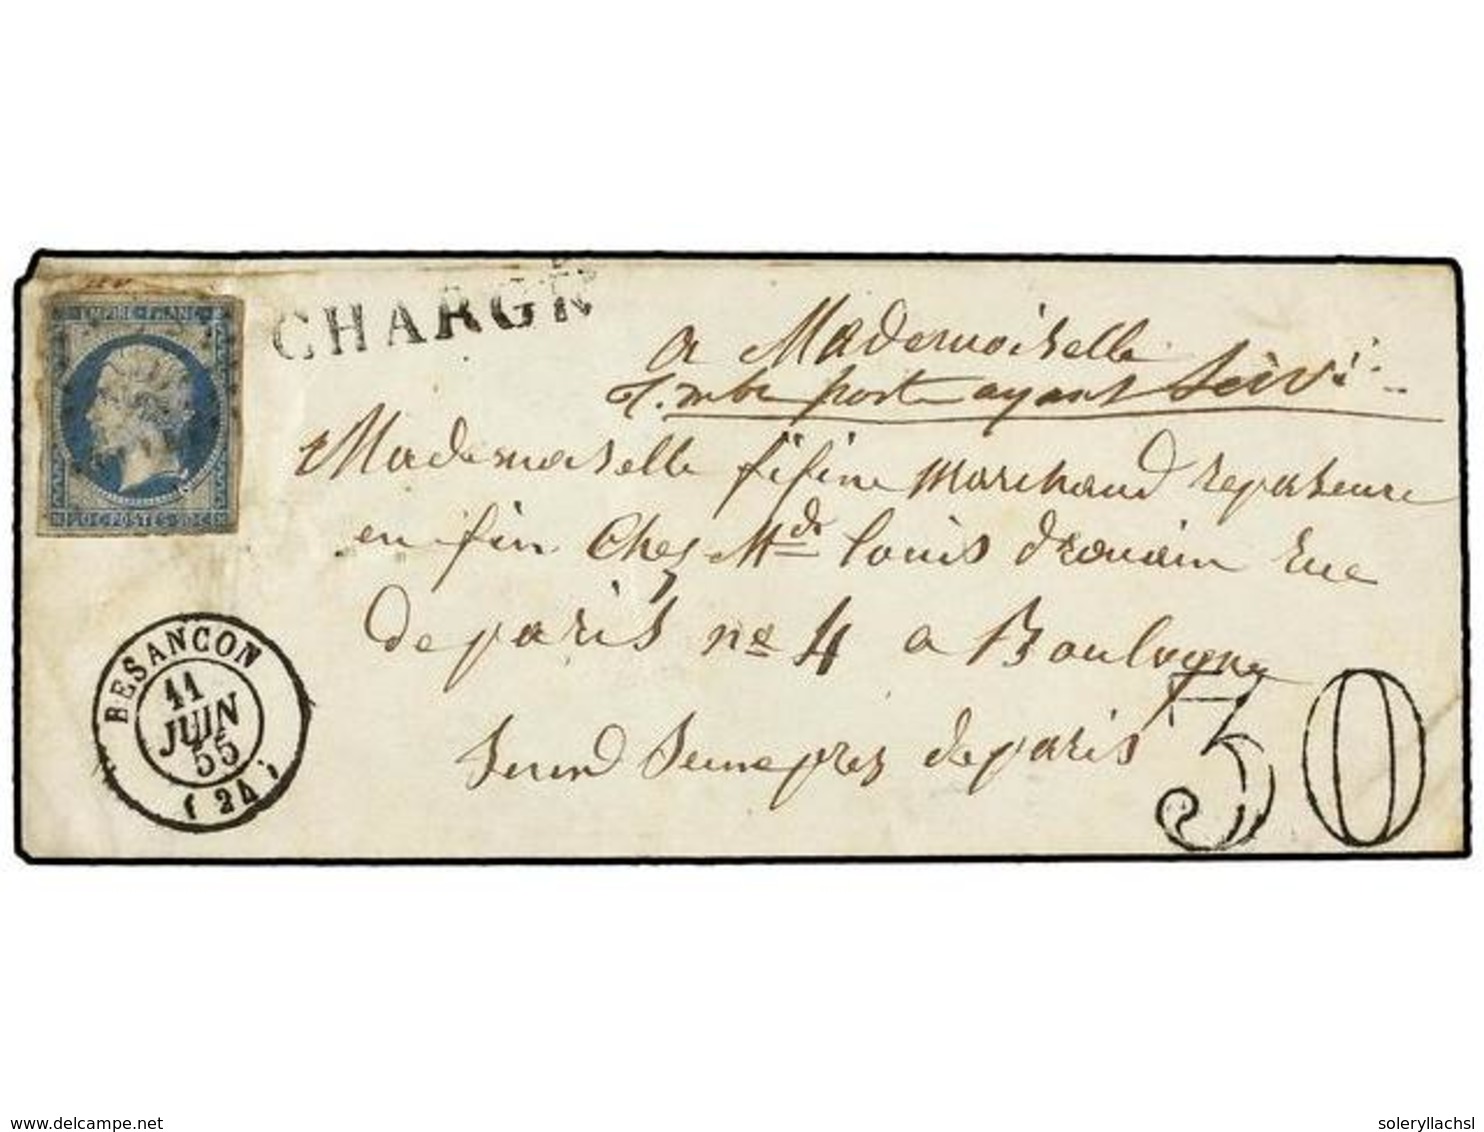 EMPIRE FRANC
20 C POSTES 20 C
CHARGÉ
a Mademoiselle
T.mbre poste ayant Servi
Mademoiselle fifine Marchaud repaseure
en fin Chez Md. louis drouain Rue
de paris no 4 a Boulogne
Sur Seine pres de paris
BESANCON
11
JUIN
55
(24)
30
www.delcampe.net
soleryllachsl